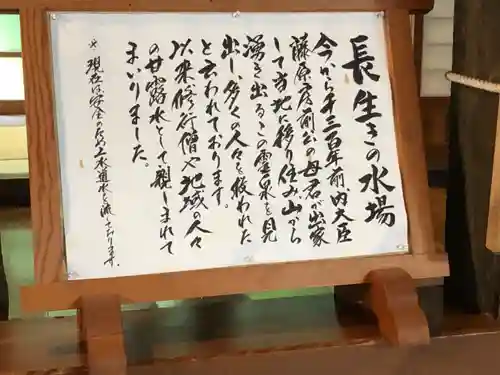 長生きの水場
今から千三百年前、内大臣
藤原房前公の母君が出家
して当地に移り住み山から
湧き出るこの霊泉を見
出し、多くの人々を救われた
と云われております。
以来修行僧や地域の人々
の甘露水として親しまれて
まいりました。
※現在は安全のため上水道水を流しております。